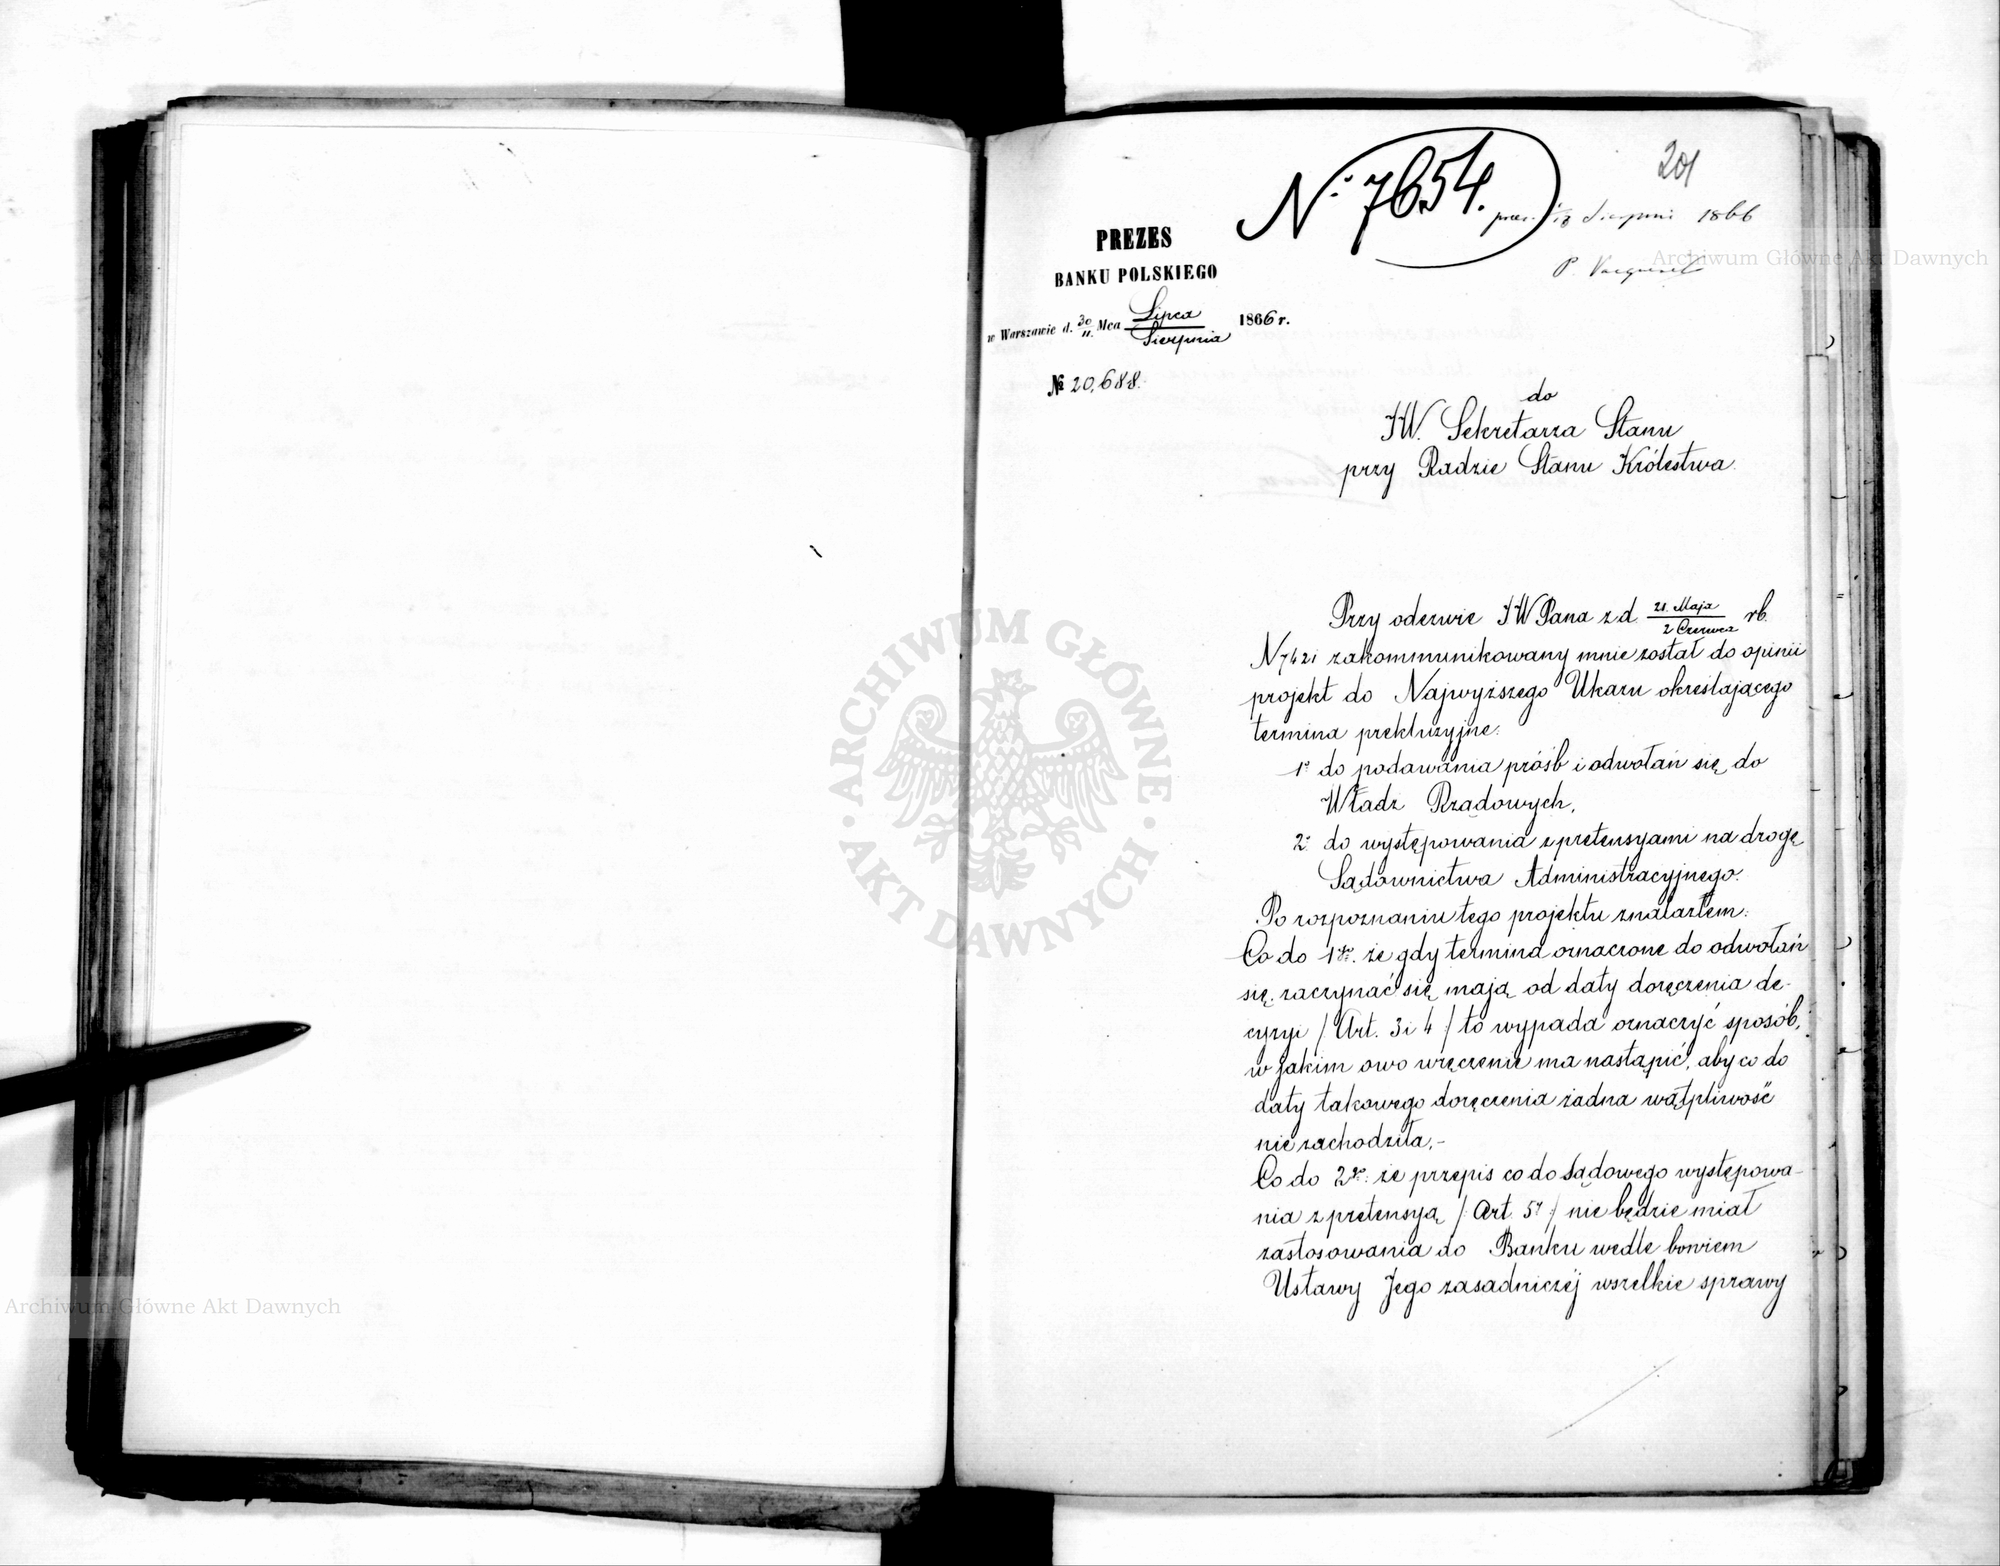 201
Nº 7654.
prez. 1/13 Sierpnia 1866
PREZES
BANKU POLSKIEGO
w Warszawie d. 30/11 Mca Lipca/Sierpnia 1866 r.
№ 20,688.
do
JW. Sekretarza Stanu
przy Radzie Stanu Królestwa.
Przy odezwie JW Pana z d. 21. Maja/2 Czerwca rb.
N 7421 zakommunikowany mnie został do opinii
projekt do Najwyższego Ukazu określającego
termina prekluzyjne:
1º do podawania próśb i odwołań się do
Władz Rządowych,
2º do występowania z pretensyami na drogę
Sądownictwa Administracyjnego.
Po rozpoznaniu tego projektu znalazłem:
Co do 1go. że gdy termina oznaczone do odwołań
się zaczynać się mają od daty doręczenia de-
cyzyi /: Art. 3 i 4 :/ to wypada oznaczyć sposób,
w jakim owo wręczenie ma nastąpić, aby co do
daty takowego doręczenia żadna wątpliwość
nie zachodziła,-
Co do 2go: że przepis co do Sądowego występowa-
nia z pretensyą /: Art. 5º :/ nie będzie miał
zastosowania do Banku wedle bowiem
Ustawy Jego zasadniczéj wszelkie sprawy
ARCHIWUM GŁÓWNE AKT DAWNYCH
Archiwum Główne Akt Dawnych
Archiwum Główne Akt Dawnych